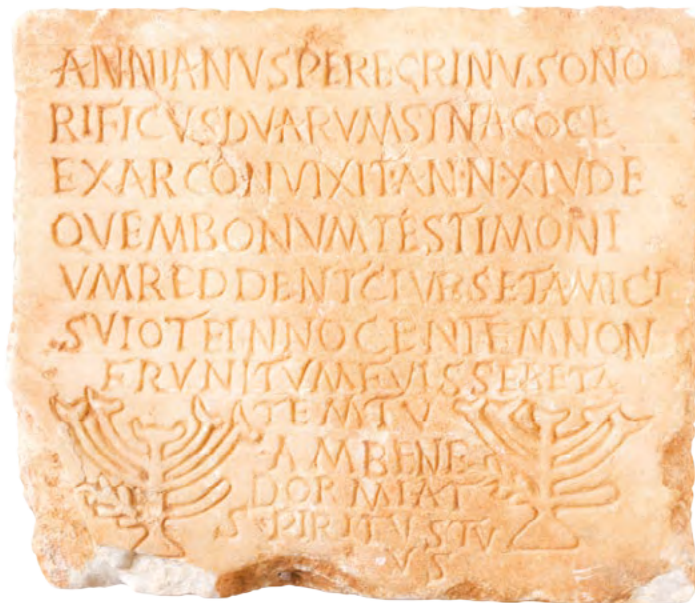 ANNIANVSPEREGRINVSONO
RIFICVSDVARVMSINACOCE
EXARCONVIXITAN·N·XLVDE
QVEMBONVMTESTIMONI
VMREDDENTCIVESETAMICI
SVIOTEINNOCENTEMNON
FRVNITVMFVISSEBETA
ATEMTV
AMBENE
DORMIAT
SPIRITVSTV
VS